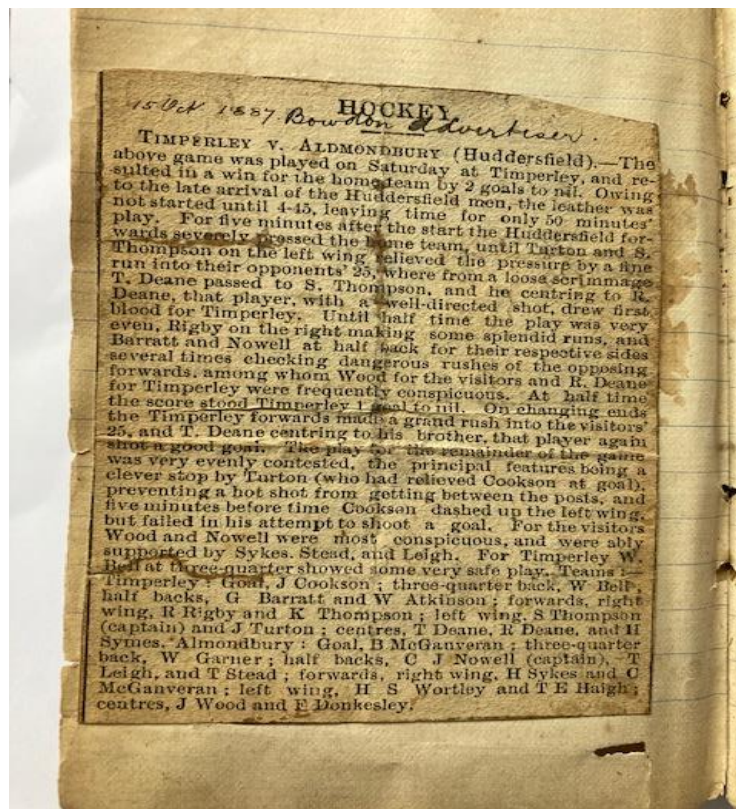 HOCKEY.
15 Oct 1887 Bowdon Advertiser.
TIMPERLEY V. ALDMONDBURY (Huddersfield).—The
above game was played on Saturday at Timperley, and re-
sulted in a win for the home team by 2 goals to nil. Owing
to the late arrival of the Huddersfield men, the leather was
not started until 4-45, leaving time for only 50 minutes'
play. For five minutes after the start the Huddersfield for-
wards severely pressed the home team, until Turton and S.
Thompson on the left wing relieved the pressure by a fine
run into their opponents' 25, where from a loose scrimmage
T. Deane passed to S. Thompson, and he centring to R.
Deane, that player, with a well-directed shot, drew first
blood for Timperley. Until half time the play was very
even, Rigby on the right making some splendid runs, and
Barratt and Nowell at half back for their respective sides
several times checking dangerous rushes of the opposing
forwards, among whom Wood for the visitors and R. Deane
for Timperley were frequently conspicuous. At half time
the score stood Timperley 1 goal to nil. On changing ends
the Timperley forwards made a grand rush into the visitors'
25, and T. Deane centring to his brother, that player again
shot a good goal. The play for the remainder of the game
was very evenly contested, the principal features being a
clever stop by Turton (who had relieved Cookson at goal),
preventing a hot shot from getting between the posts, and
five minutes before time Cookson dashed up the left wing,
but failed in his attempt to shoot a goal. For the visitors
Wood and Nowell were most conspicuous, and were ably
supported by Sykes, Stead, and Leigh. For Timperley W.
Bell at three-quarter showed some very safe play. Teams :—
Timperley : Goal, J Cookson ; three-quarter back, W Bell ;
half backs, G Barratt and W Atkinson ; forwards, right
wing, R Rigby and K Thompson ; left wing, S Thompson
(captain) and J Turton ; centres, T Deane, R Deane, and H
Symes. Almondbury : Goal, B McGanveran ; three-quarter
back, W Garner ; half backs, C J Nowell (captain), T
Leigh, and T Stead ; forwards, right wing, H Sykes and C
McGanveran ; left wing, H S Wortley and T E Haigh ;
centres, J Wood and F Donkesley.